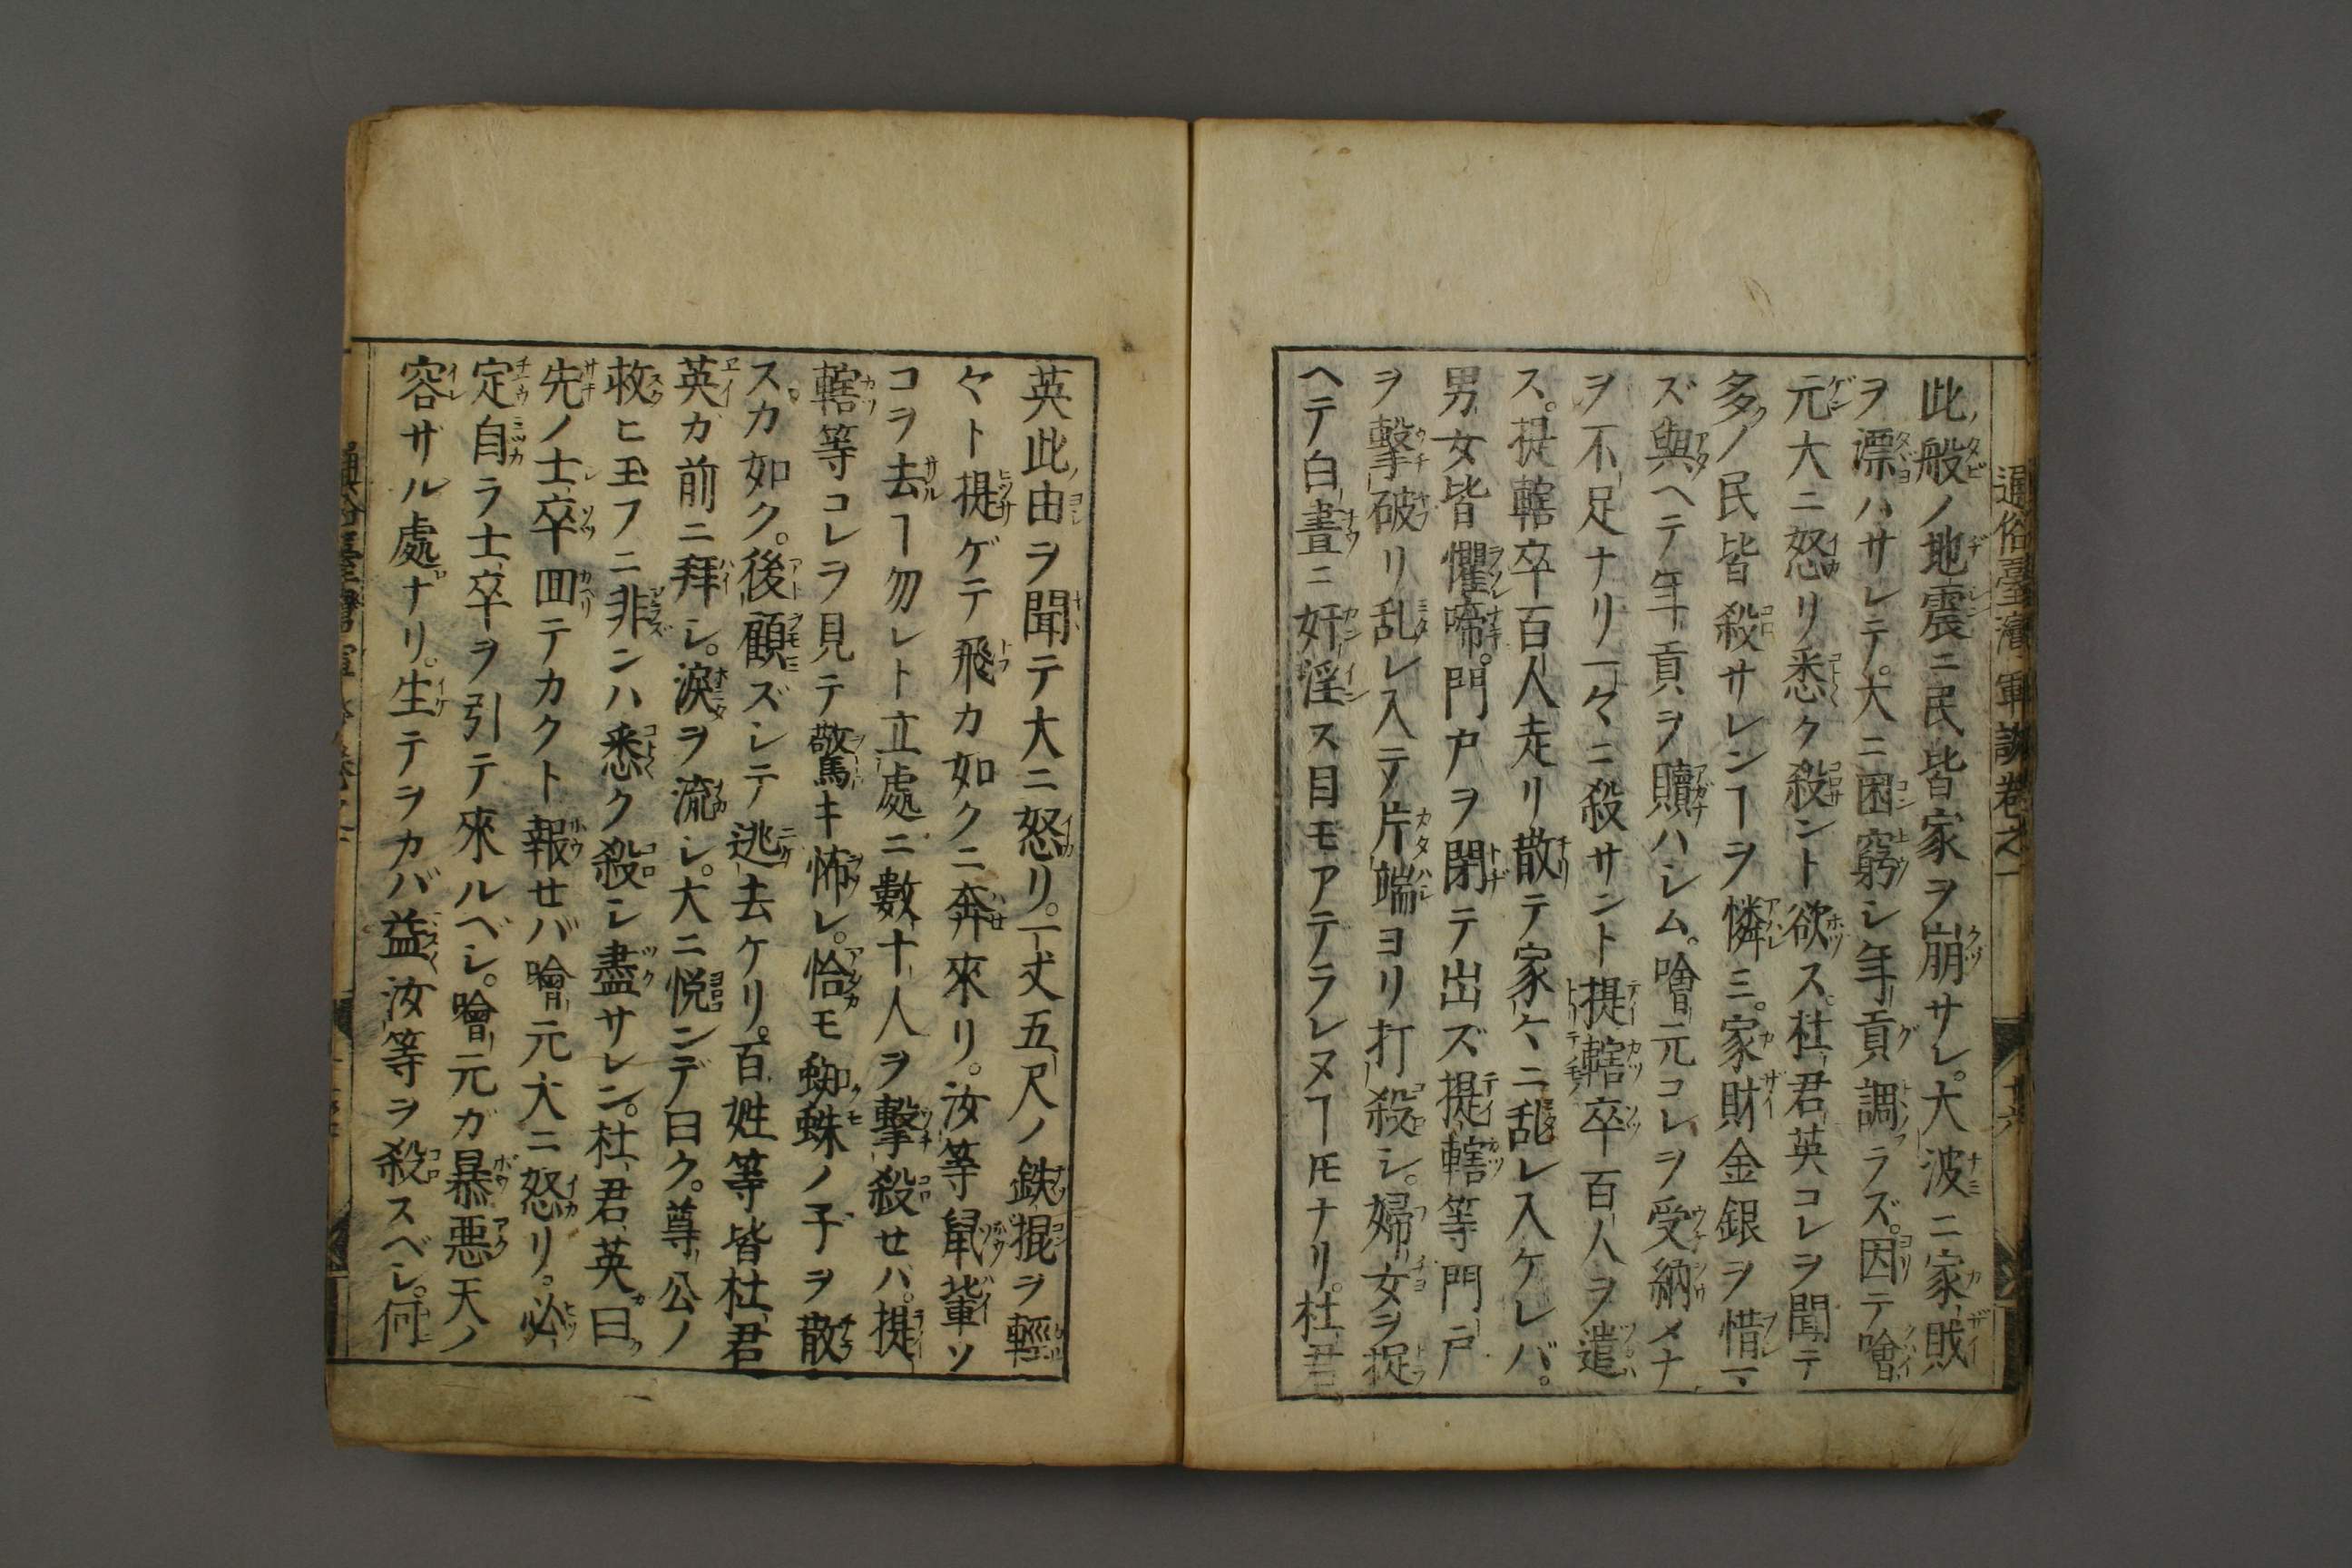 通俗臺灣軍談卷之一 十六
此般ノ地震ニ民皆家ヲ崩サレ。大波ニ家財
ヲ漂ハサレテ。大ニ困窮シ年貢調ラズ。因テ噲
元大ニ怒リ悉ク殺ント欲ス。杜君英コレヲ聞テ
多ノ民皆殺サレンヿヲ憐ミ。家財金銀ヲ惜マ
ズ與ヘテ年貢ヲ贖ハシム。噲元コレヲ受納メナ
ヲ不足ナリ一々ニ殺サント提轄卒百人ヲ遣
ス。提轄卒百人走リ散テ家々ニ乱レ入ケレバ。
男女皆懼啼。門戸ヲ閉テ出ズ提轄等門戸
ヲ擊破リ乱レ入テ片端ヨリ打殺シ。婦女ヲ捉
ヘテ白晝ニ奸淫ス目モアテラレヌヿ𪜈ナリ。杜君
英此由ヲ聞テ大ニ怒リ。一丈五尺ノ鉄棍ヲ輕
々ト提ゲテ飛カ如クニ奔來リ。汝等鼠輩ソ
コヲ去ヿ勿レト立處ニ數十人ヲ擊殺セバ。提
轄等コレヲ見テ驚キ怖レ。恰モ蜘蛛ノ子ヲ散
スカ如ク。後顧ズシテ逃去ケリ。百姓等皆杜君
英カ前ニ拜シ。涙ヲ流シ。大ニ悦ンデ曰ク。尊公ノ
救ヒ玉フニ非ンハ悉ク殺シ盡サレン。杜君英曰
先ノ士卒回テカクト報セバ噲元大ニ怒リ。必
定自ラ士卒ヲ引テ來ルベシ。噲元ガ暴惡天ノ
容ザル處ナリ。生テヲカバ益汝等ヲ殺スベシ。何